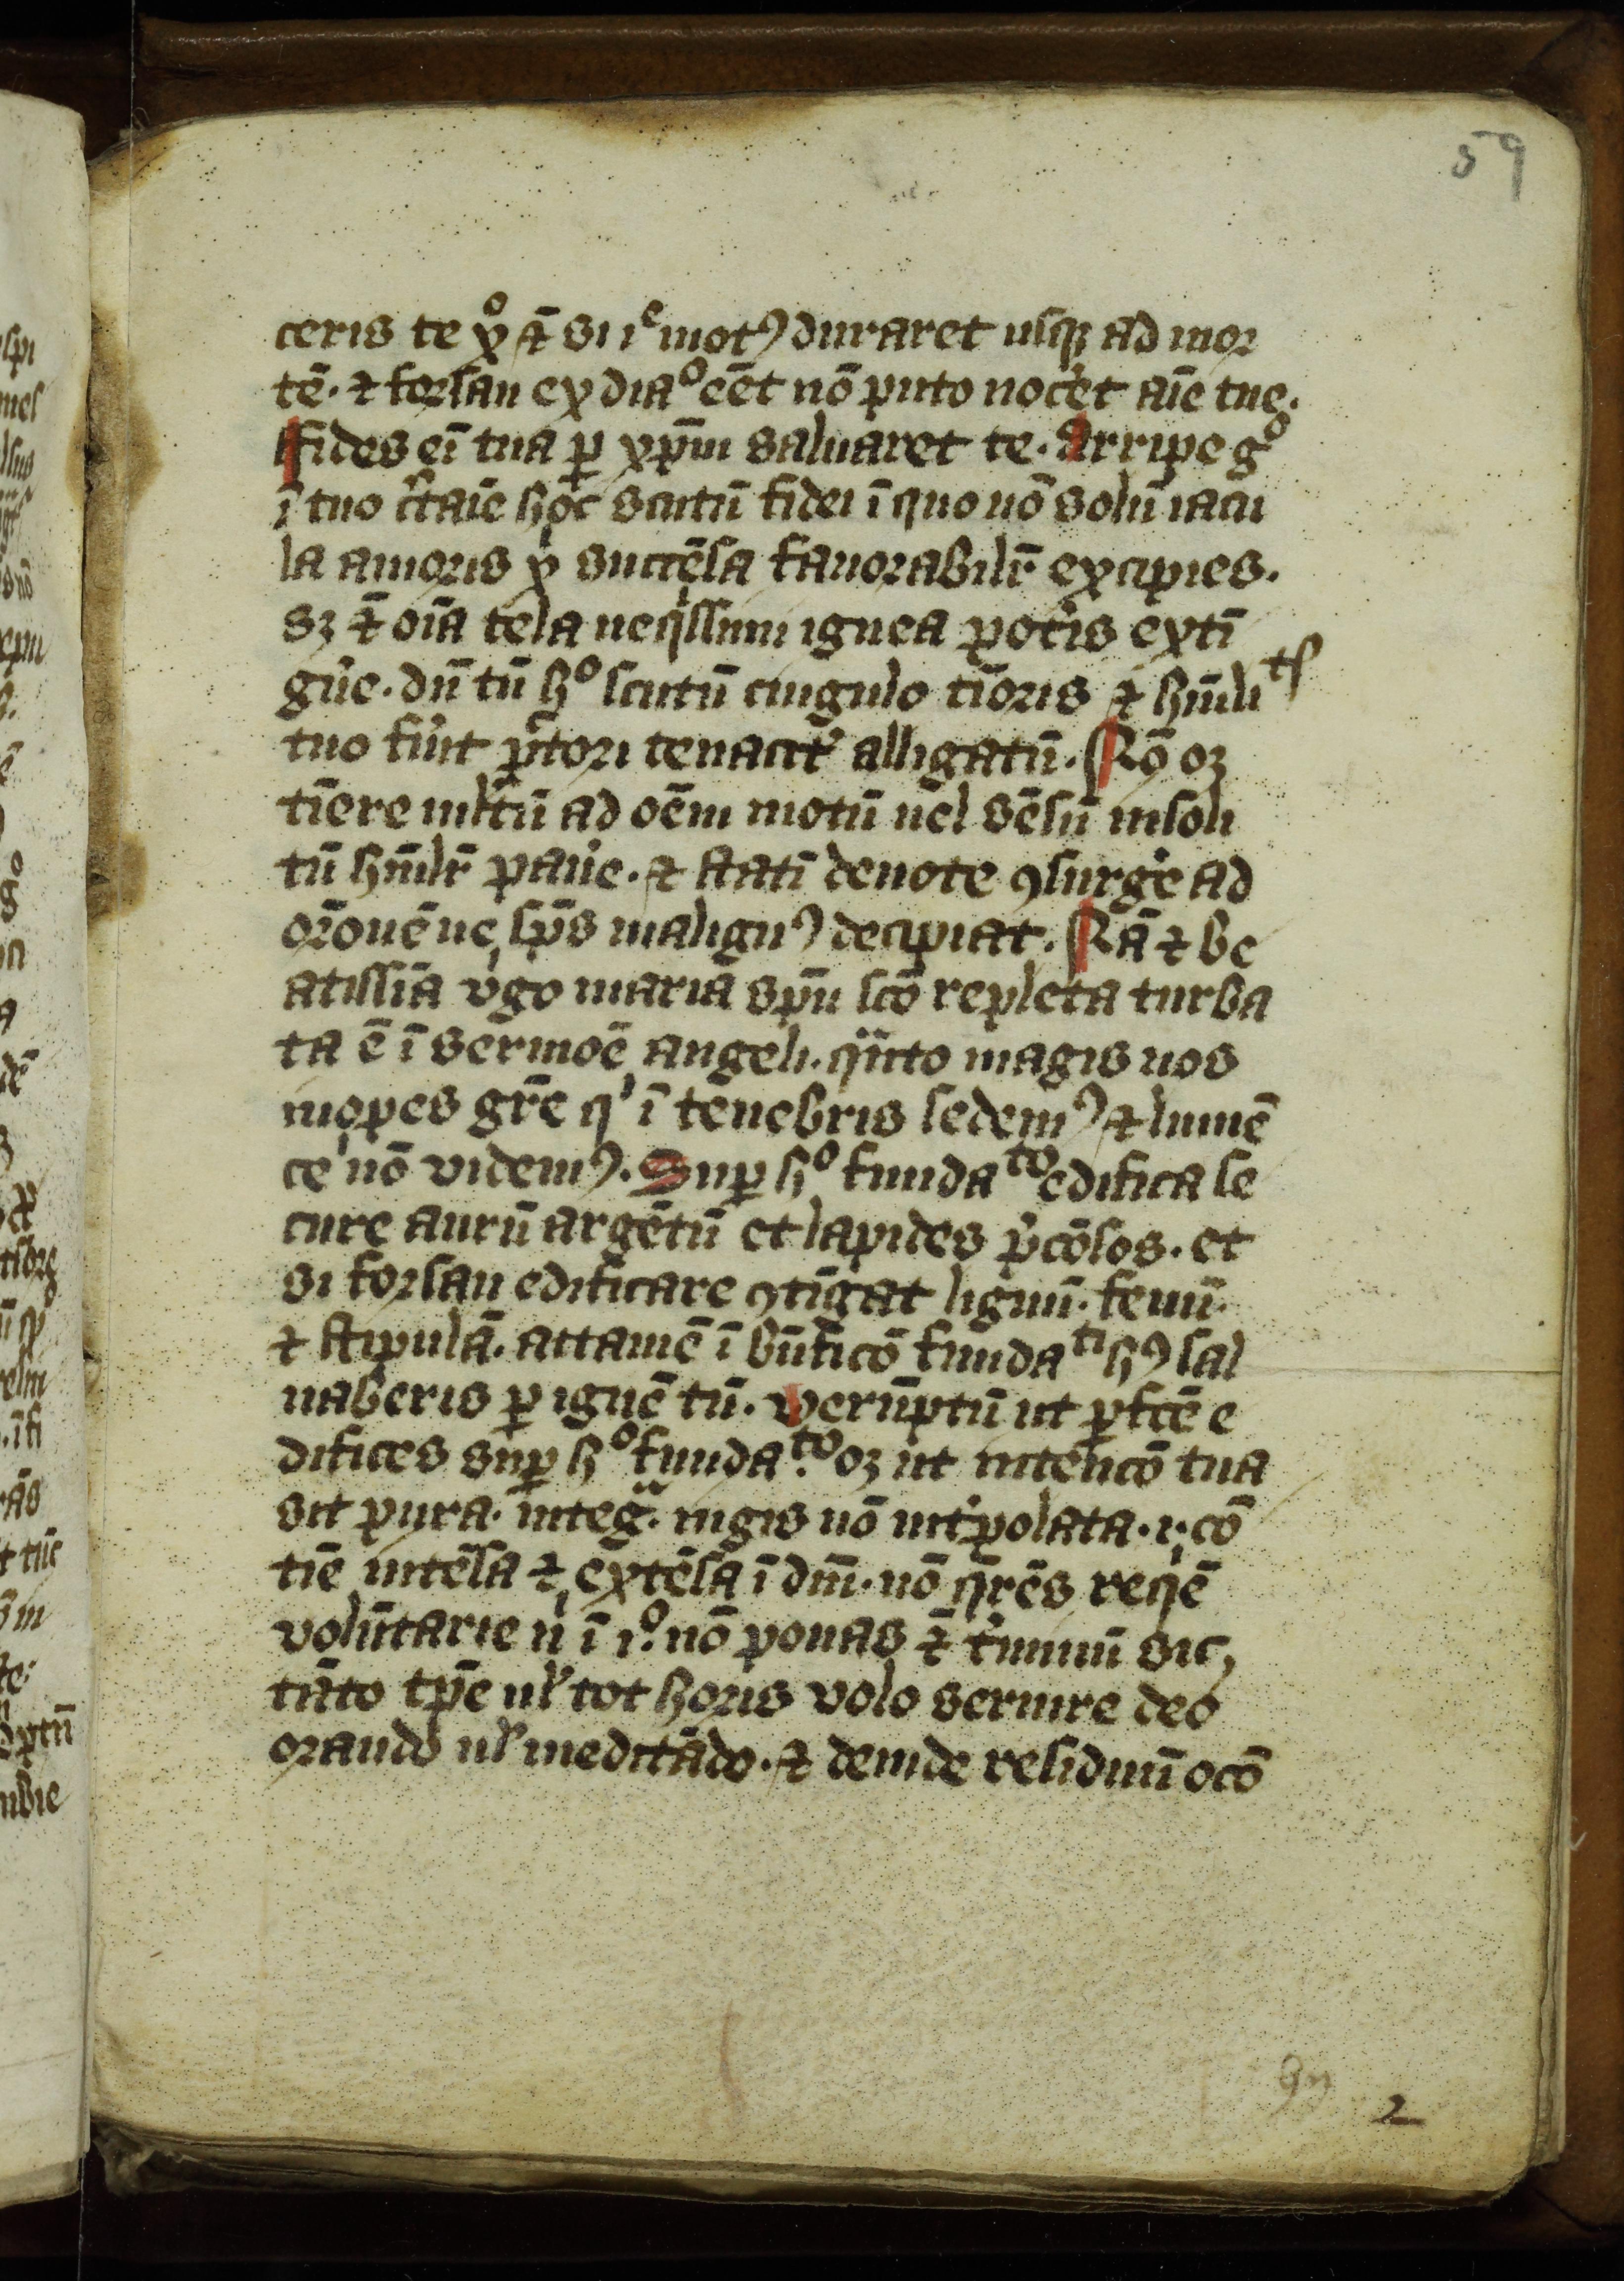 59
ceris te xͦ ⁊̄ si iᵉ motꝰ duraret usqꝫ ad mor
tē. ⁊ forsan ex diaͦ eēt nō puto nocet aīe tue.
Fides eī tua ꝑ xp̄m saluaret te. Arripe gͦ
ī tuo c̄taīe hoc scutū fidei ī quo nō solū iacu
la amoris succēsa fauorabilr̄ excipies.
sꝫ ⁊̄ oīa tela neqⁱssimi ignea potis extī
gūe. dū tn̄ hͦ scutū cingulo tīoris ⁊ hūilitꝭ
tuo fuit pc̄tori tenacit alligatū. Rō oꝫ
tīere m̄ltū ad oēm motū ūel sēsū insoli
tū hūilr̄ paue. ⁊ statī deuote ꝯsurge ad
or̄onē ne sp̄s malignꝰ decipiat. Nā ⁊ be
atissīa v̓go maria sp̄u sc̄o repleta turba
ta ē ī sermoē angeli. qⁱnto magis nos
inopes gr̄e qⁱ ī tenebris sedemꝰ ⁊ lumē
ce nō videmꝰ. Suꝑ hͦ fundaᵗᵒ edifica se
cure aurū argētū et lapides p̄cōsos. et
si forsan edificare ꝯtīgat lignū. fenū.
⁊ stipulā. attamē ī būficō fundaᵗⁱ hꝰ sal
uaberis ꝑ ignē tn̄. Verūptn̄ ut ꝑfcē e
difices suꝑ hͦ fundaᵗᵒ. oꝫ ut intēcō tua
sit pura. integᵃ. iugis nō int̓polata. ⁊ cō
tīe intēsa ⁊ extēsa ī dn̄i. nō qⁱrēs reqⁱē
volūtarie ī iͦ. nō ponas ⁊̄ t̓minū sic
tāto tꝑe ul̓ tot horis volo seruire deo
orando ul̓ meditādo. ⁊ deinde residuū ocō
2